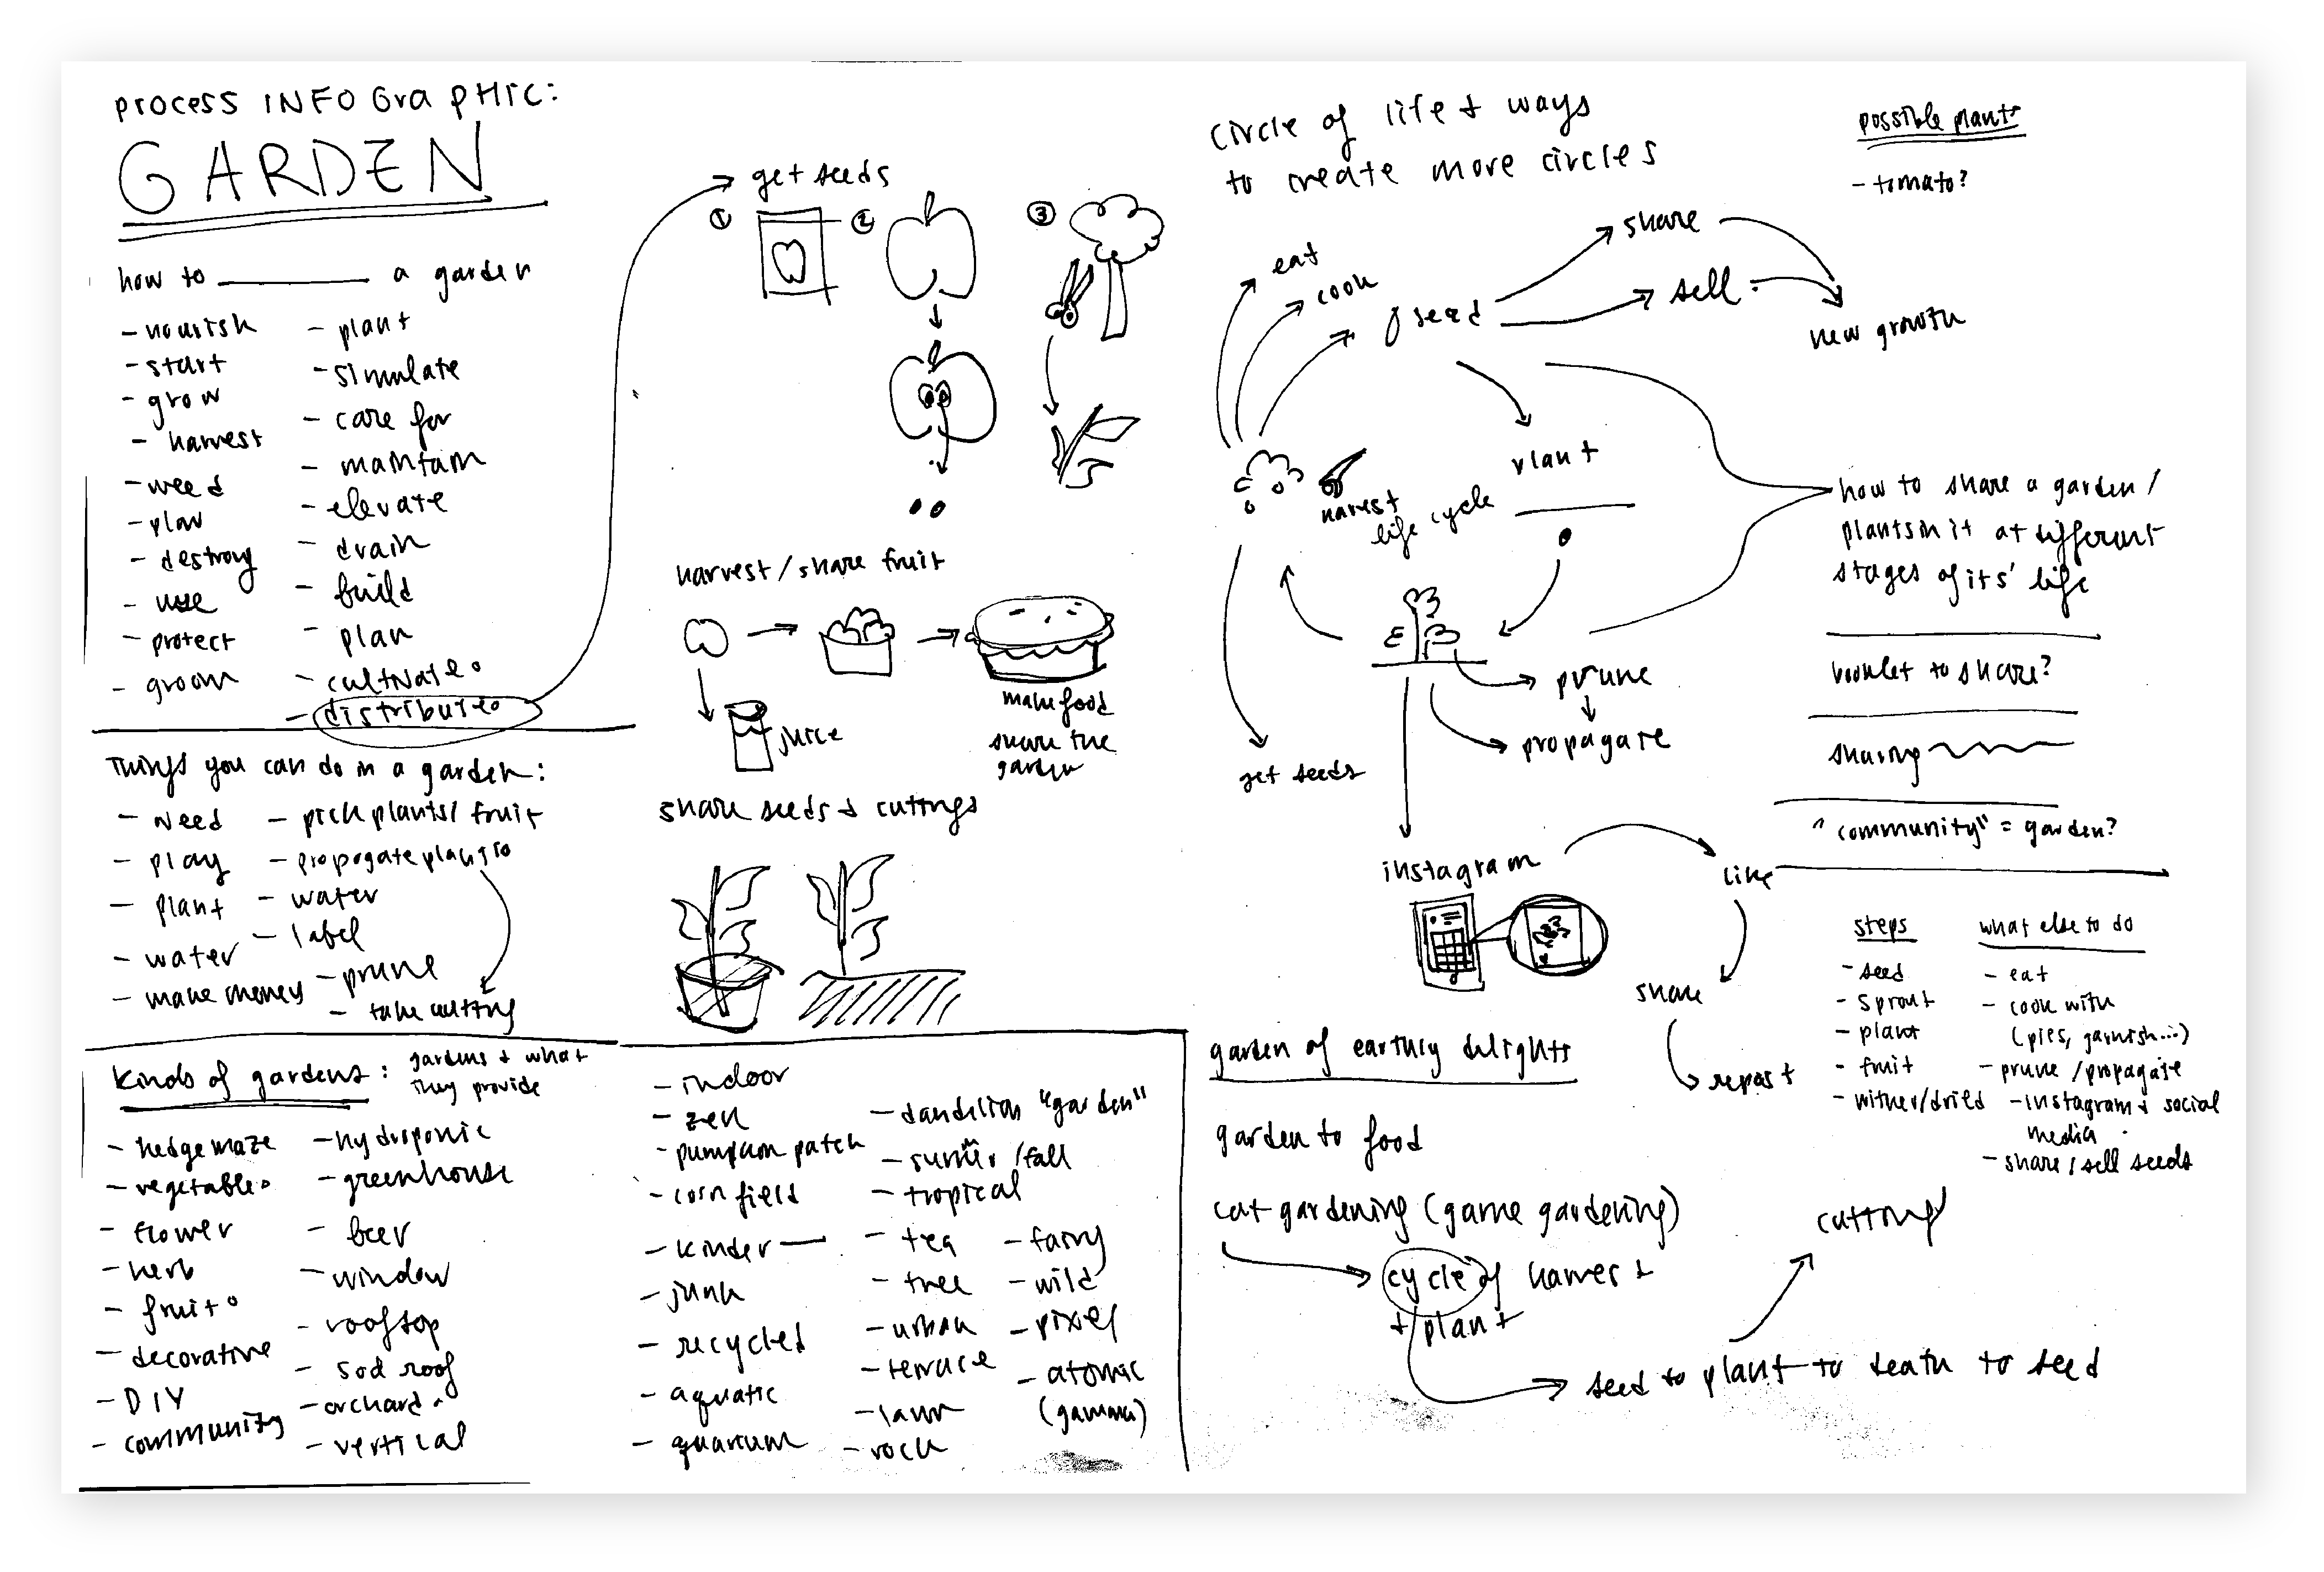 PROCESS INFOGRAPHIC:
GARDEN
how to ________ a garden
- nourish
- start
- grow
- harvest
- weed
- plan
- destroy
- use
- protect
- groom
- plant
- simulate
- care for
- maintain
- elevate
- drain
- build
- plan
- cultivate
- distribute
Things you can do in a garden:
- weed
- play
- plant
- water
- make money
- pick plants/fruit
- propogate plants
- water
- label
- prune
- take cutting
Kinds of gardens:
gardens + what
they provide
- hedge maze
- vegetable
- flower
- herb
- fruit
- decorative
- DIY
- community
- hydroponic
- greenhouse
- beer
- window
- rooftop
- sod roof
- orchard
- vertical
- indoor
- zen
- pumpkin patch
- corn field
- kinder —
- junk
- recycled
- aquatic
- quarium
- dandelion "garden"
- summer/fall
- tropical
- tea
- tree
- urban
- terrace
- lawn
- rock
- fairy
- wild
- pixel
- atomic
(gamma)
get seeds
1
2
3
harvest/share fruit
juice
make food
share the
garden
share seeds + cuttings
circle of life + ways
to create more circles
eat
cook
seed
share
sell
new growth
plant
harvest
life cycle
prune
propagate
get seeds
instagram
like
share
repost
possible plants
- tomato?
how to share a garden/
plants in it at different
stages of its' life
booklet to share?
sharing
"community" = garden?
steps
- seed
- sprout
- plant
- fruit
- wither/dried
what else to do
- eat
- cook with
(pies, garnish...)
- prune/propagate
- instagram + social
media
- share/sell seeds
garden of earthly delights
garden to food
cat gardening (game gardening)
cycle of harvest
+ plant
cutting
seed to plant to death to seed